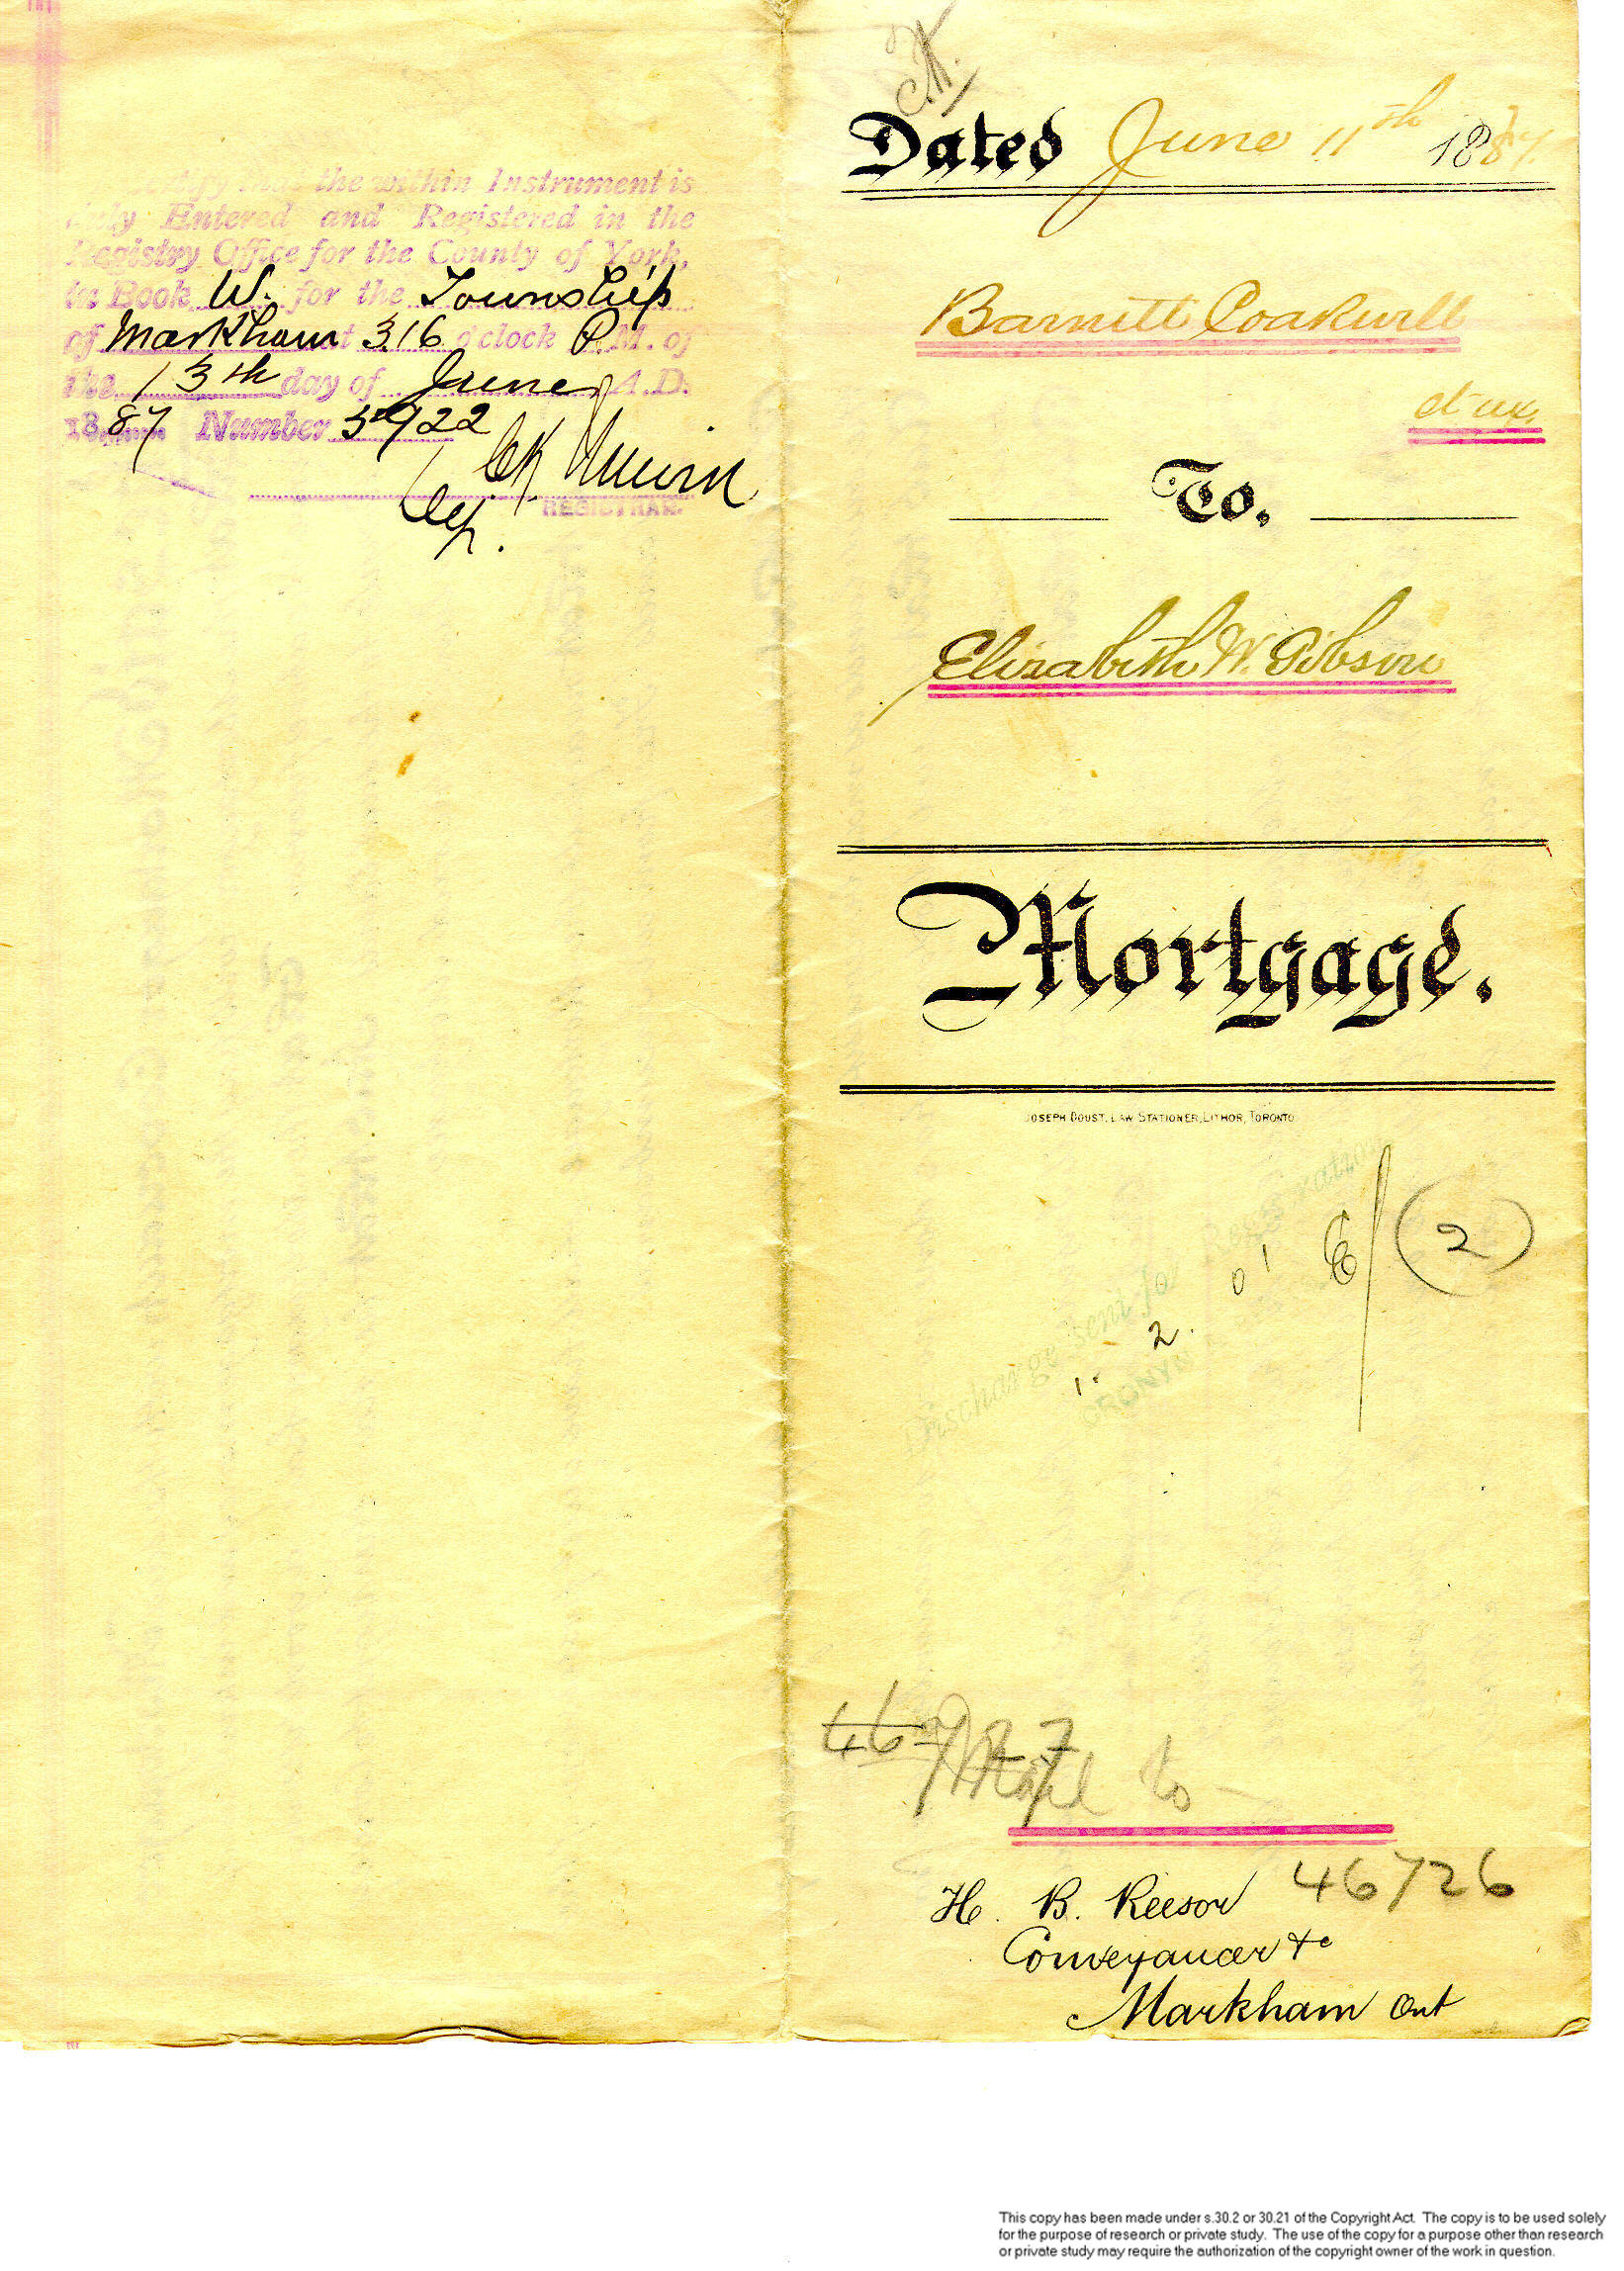 the within Instrument is
duly Entered and Registered in the
Registry Office for the County of York,
in Book W. for the Township
of Markham at 3.16 o'clock P.M. of
the 13th day of June A.D.
1887 Number 5922
Dep.
REGISTRAR.
Dated June 11th 1887.
Barnett Coakwell
et ux.
To.
Elizabeth W. Gibson
Mortgage.
JOSEPH DOUST, LAW STATIONER, LITHOR, TORONTO
Discharge sent for Registration
(2)
2.
Mail to
H. B. Reesor 46726
Conveyancer &c
Markham Ont
This copy has been made under s.30.2 or 30.21 of the Copyright Act. The copy is to be used solely
for the purpose of research or private study. The use of the copy for a purpose other than research
or private study may require the authorization of the copyright owner of the work in question.